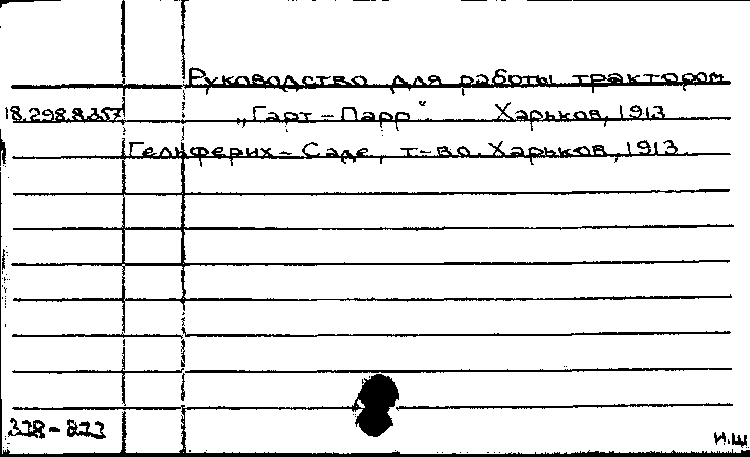 Руководство для работы трактором
18.298.8.357 „Гарт-Парр". Харьков, 1913
Гельферих-Саде, т-во. Харьков, 1913.
338-
И.Ш